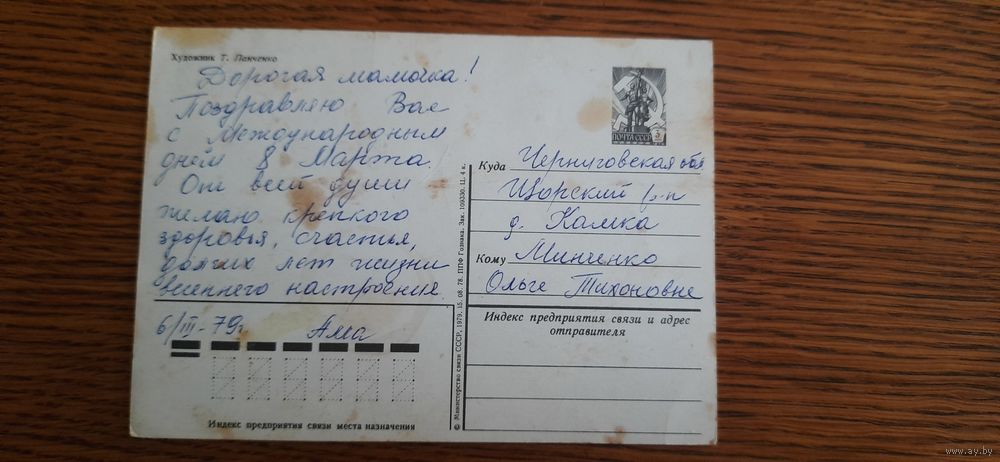 Художник Т. Панченко
Дорогая мамочка!
Поздравляю Вас
с Международным
днём 8 Марта.
От всей души
желаю крепкого
здоровья, счастья,
долгих лет жизни
весеннего настроения.
6/III-79г Алла
Индекс предприятия связи места назначения
© Министерство связи СССР, 1979. 15. 08. 78. ППФ Гознака. Зак. 109330. Ц. 4 к.
ПОЧТА СССР
Куда Черниговская обл
Щорский р-н
д. Камка
Кому Минченко
Ольге Тихоновне
Индекс предприятия связи и адрес
отправителя
www.ay.by